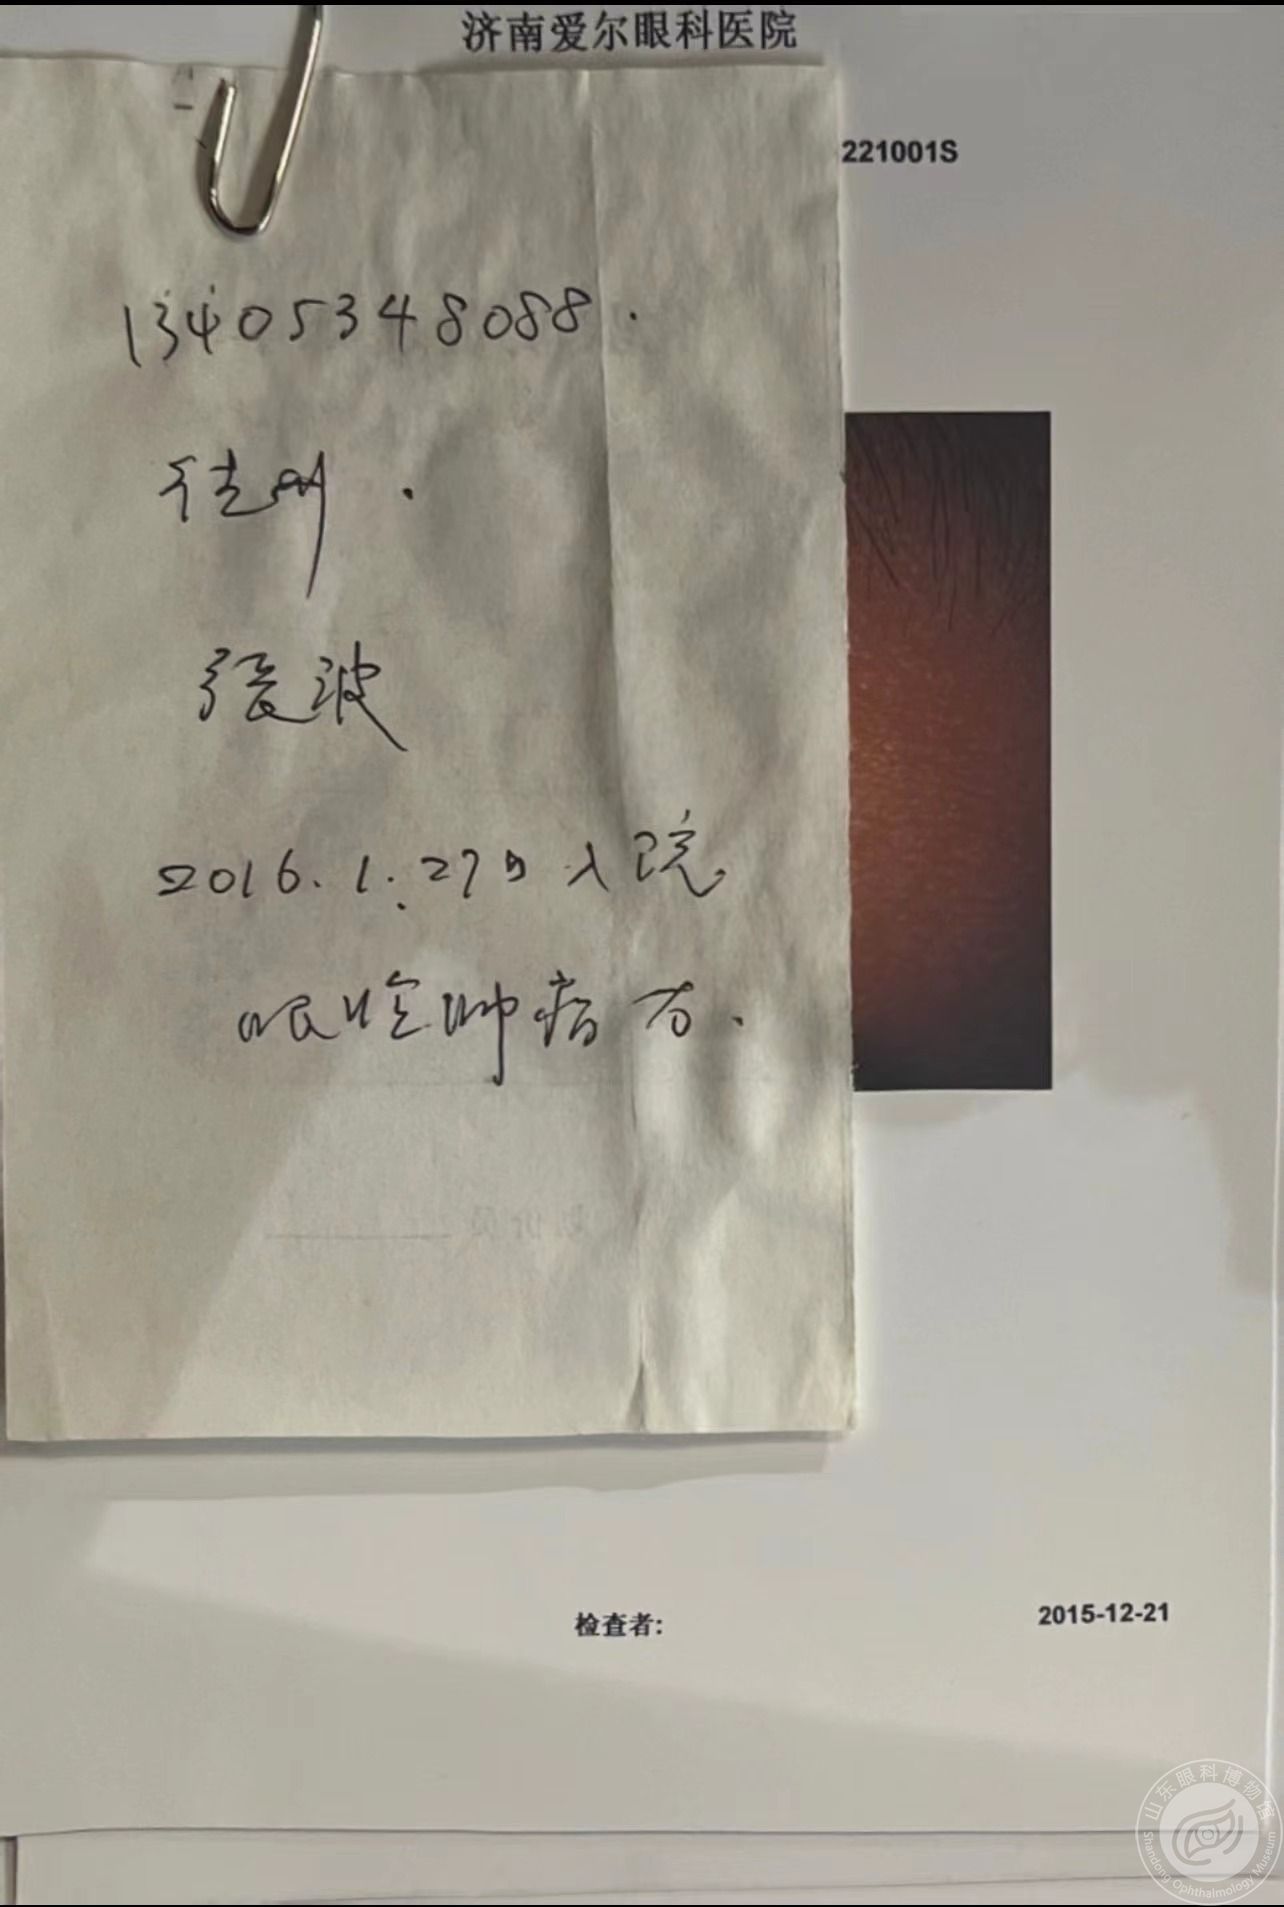 济南爱尔眼科医院
221001S
13405348088.
张波
2016.1.27日入院
眼睑肿瘤
检查者:
2015-12-21
山东眼科博物馆
Shandong Ophthalmology Museum